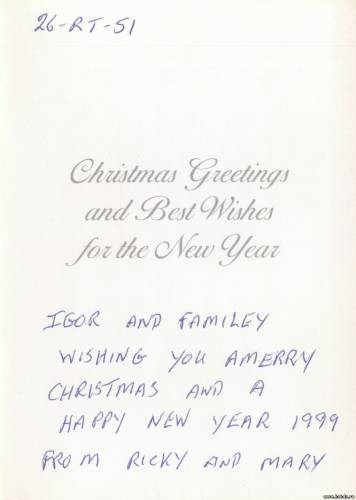 26-RT-51
Christmas Greetings
and Best Wishes
for the New Year
IGOR AND FAMILEY
WISHING YOU AMERRY
CHRISTMAS AND A
HAPPY NEW YEAR 1999
FROM RICKY AND MARY